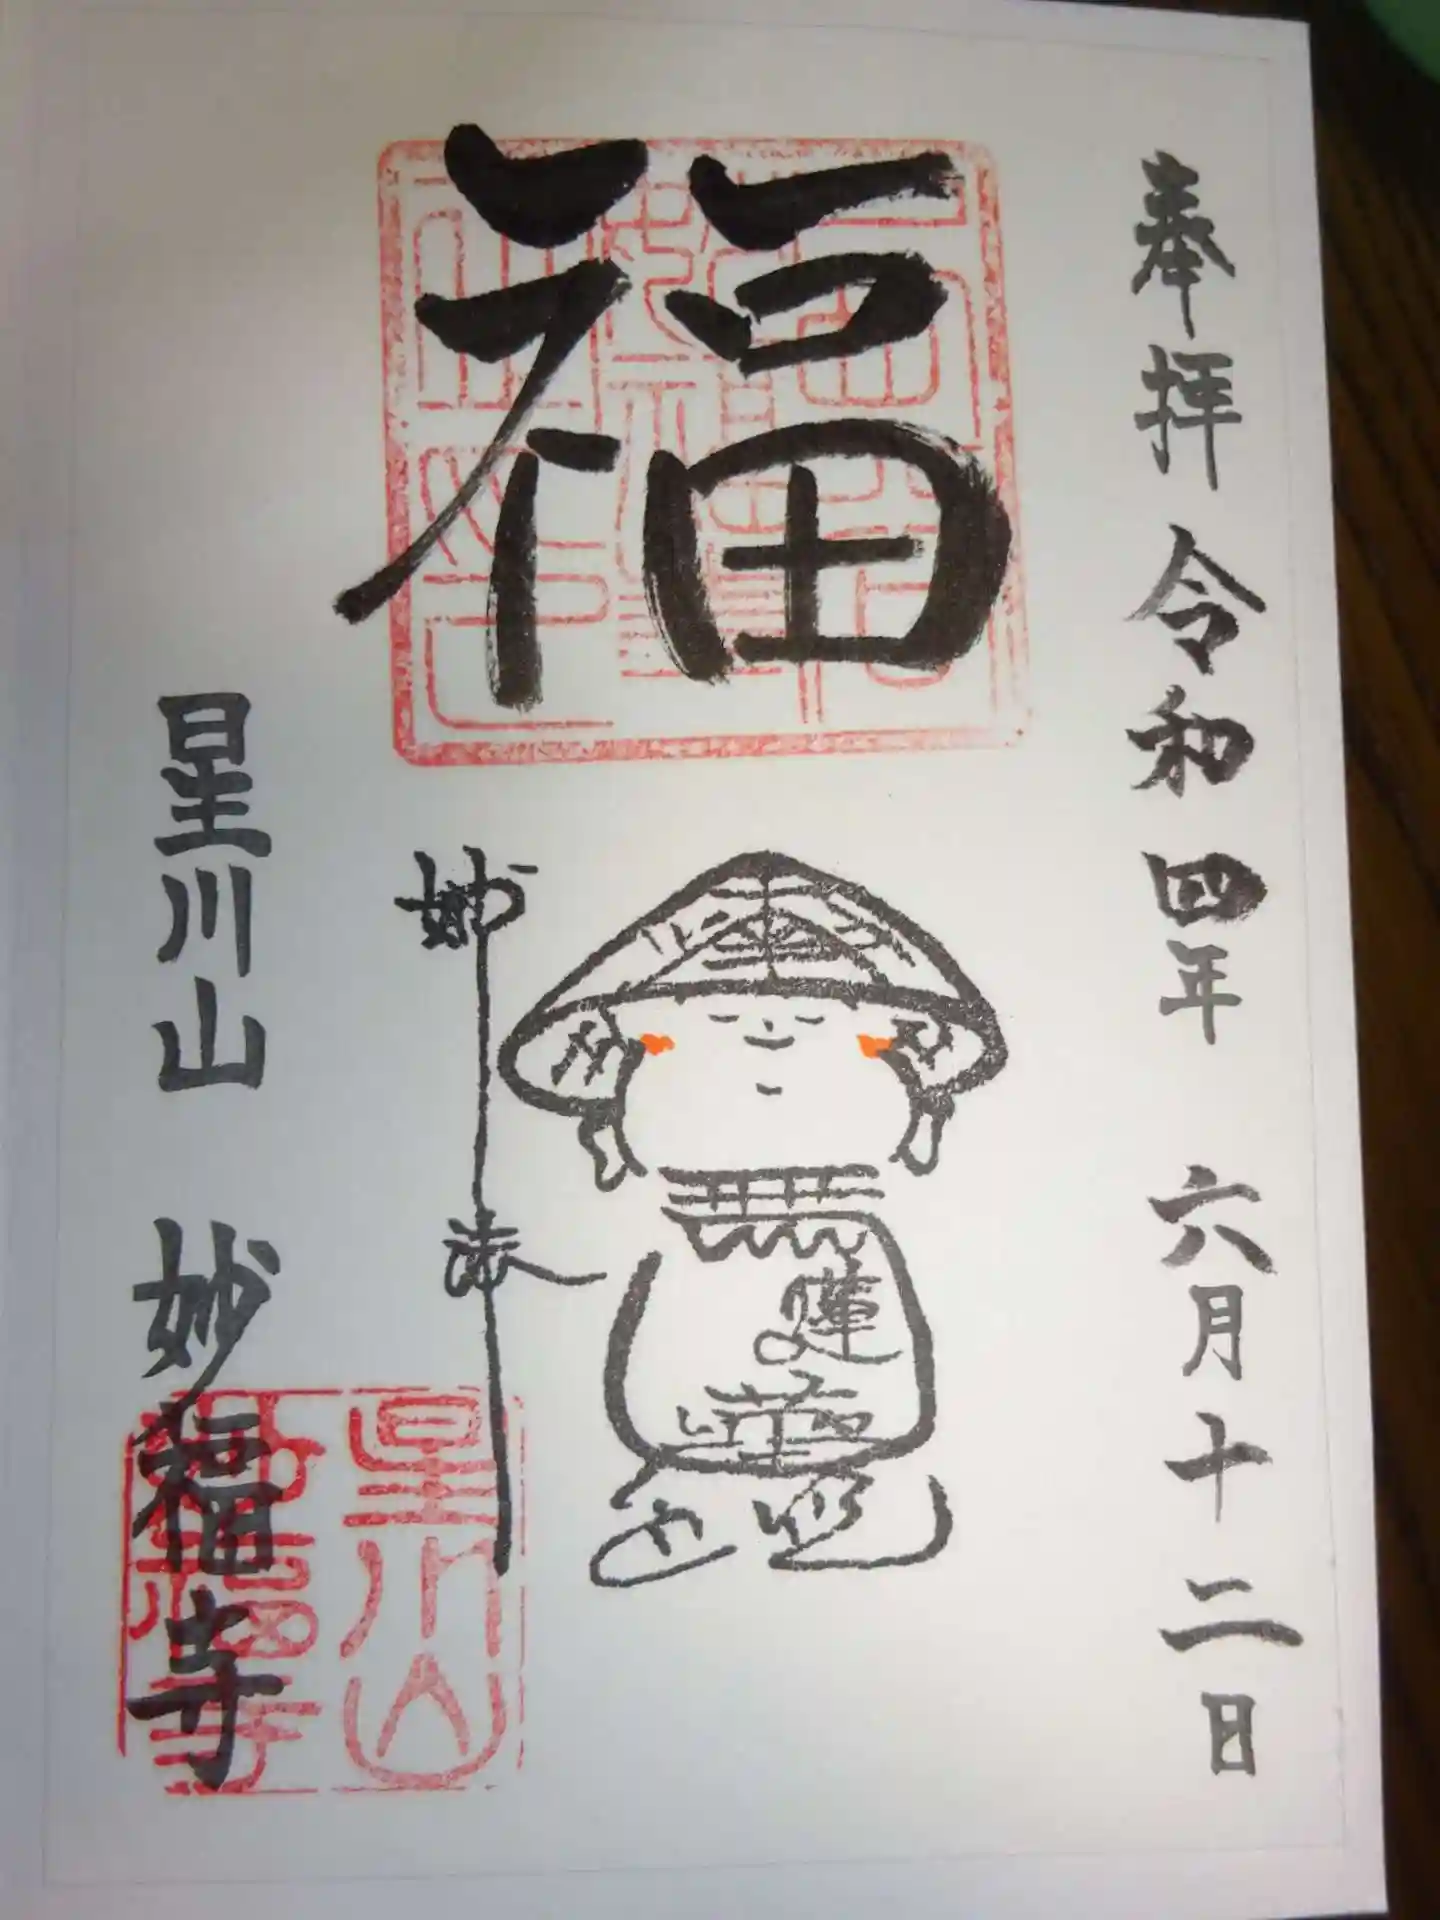 奉拝 令和四年 六月十二日
福
妙法
蓮華
星川山 妙福寺
星川山
妙福寺